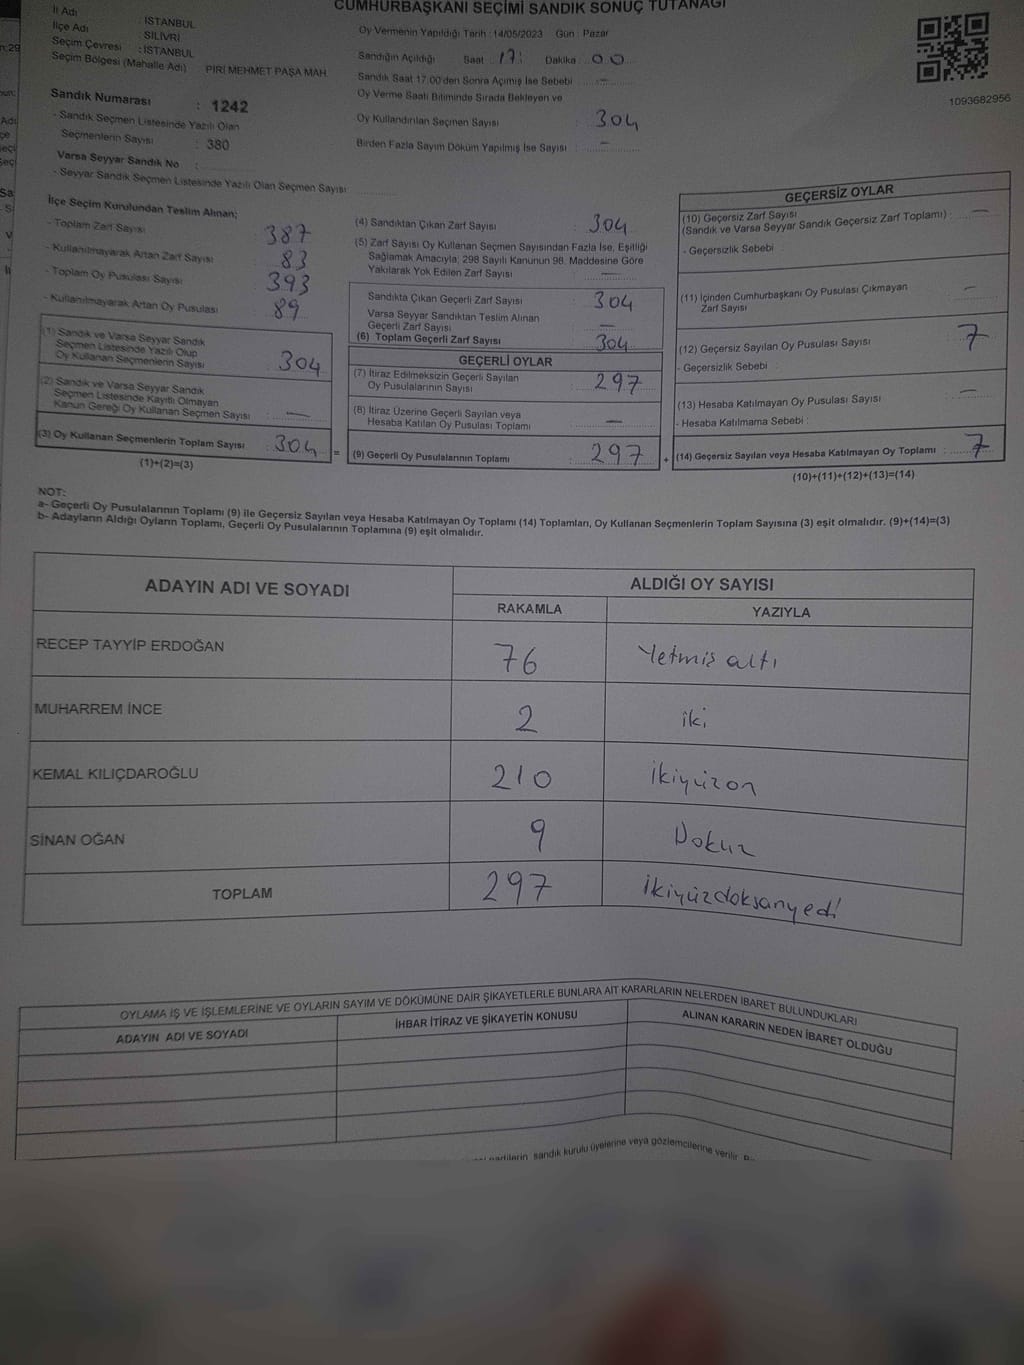 CUMHURBAŞKANI SEÇİMİ SANDIK SONUÇ TUTANAĞI
İl Adı : İSTANBUL
İlçe Adı SİLİVRİ
Seçim Çevresi : İSTANBUL
Seçim Bölgesi (Mahalle Adı) PİRİ MEHMET PAŞA MAH.
Sandık Numarası : 1242
- Sandık Seçmen Listesinde Yazılı Olan
Seçmenlerin Sayısı : 380
Varsa Seyyar Sandık No :
- Seyyar Sandık Seçmen Listesinde Yazılı Olan Seçmen Sayısı:
Oy Vermenin Yapıldığı Tarih : 14/05/2023 Gün : Pazar
Sandığın Açıldığı Saat : 17 Dakika : 00
Sandık Saat 17:00'den Sonra Açımış İse Sebebi : —
Oy Verme Saati Bitiminde Sırada Bekleyen ve
Oy Kullandırılan Seçmen Sayısı : 304
Birden Fazla Sayım Döküm Yapılmış İse Sayısı : —
1093682956
İlçe Seçim Kurulundan Teslim Alınan;
- Toplam Zarf Sayısı 387
- Kullanılmayarak Artan Zarf Sayısı 83
- Toplam Oy Pusulası Sayısı 393
- Kullanılmayarak Artan Oy Pusulası 89
(1) Sandık ve Varsa Seyyar Sandık
Seçmen Listesinde Yazılı Olup
Oy Kullanan Seçmenlerin Sayısı : 304
(2) Sandık ve Varsa Seyyar Sandık
Seçmen Listesinde Kayıtlı Olmayan
Kanun Gereği Oy Kullanan Seçmen Sayısı : —
(3) Oy Kullanan Seçmenlerin Toplam Sayısı : 304 =
(1)+(2)=(3)
(4) Sandıktan Çıkan Zarf Sayısı : 304
(5) Zarf Sayısı Oy Kullanan Seçmen Sayısından Fazla İse, Eşitliği
Sağlamak Amacıyla; 298 Sayılı Kanunun 98. Maddesine Göre
Yakılarak Yok Edilen Zarf Sayısı : —
Sandıkta Çıkan Geçerli Zarf Sayısı : 304
Varsa Seyyar Sandıktan Teslim Alınan
Geçerli Zarf Sayısı : —
(6) Toplam Geçerli Zarf Sayısı : 304
GEÇERLİ OYLAR
(7) İtiraz Edilmeksizin Geçerli Sayılan
Oy Pusulalarının Sayısı : 297
(8) İtiraz Üzerine Geçerli Sayılan veya
Hesaba Katılan Oy Pusulası Toplamı : —
(9) Geçerli Oy Pusulalarının Toplamı : 297 +
GEÇERSİZ OYLAR
(10) Geçersiz Zarf Sayısı
(Sandık ve Varsa Seyyar Sandık Geçersiz Zarf Toplamı) : —
- Geçersizlik Sebebi :
(11) İçinden Cumhurbaşkanı Oy Pusulası Çıkmayan
Zarf Sayısı : —
(12) Geçersiz Sayılan Oy Pusulası Sayısı : 7
- Geçersizlik Sebebi :
(13) Hesaba Katılmayan Oy Pusulası Sayısı : —
- Hesaba Katılmama Sebebi :
(14) Geçersiz Sayılan veya Hesaba Katılmayan Oy Toplamı : 7
(10)+(11)+(12)+(13)=(14)
NOT:
a- Geçerli Oy Pusulalarının Toplamı (9) ile Geçersiz Sayılan veya Hesaba Katılmayan Oy Toplamı (14) Toplamları, Oy Kullanan Seçmenlerin Toplam Sayısına (3) eşit olmalıdır. (9)+(14)=(3)
b- Adayların Aldığı Oyların Toplamı, Geçerli Oy Pusulalarının Toplamına (9) eşit olmalıdır.
ADAYIN ADI VE SOYADI ALDIĞI OY SAYISI
RAKAMLA YAZIYLA
RECEP TAYYİP ERDOĞAN 76 Yetmiş altı
MUHARREM İNCE 2 iki
KEMAL KILIÇDAROĞLU 210 ikiyüzon
SİNAN OĞAN 9 Dokuz
TOPLAM 297 ikiyüzdoksanyedi
OYLAMA İŞ VE İŞLEMLERİNE VE OYLARIN SAYIM VE DÖKÜMÜNE DAİR ŞİKAYETLERLE BUNLARA AİT KARARLARIN NELERDEN İBARET BULUNDUKLARI
ADAYIN ADI VE SOYADI İHBAR İTİRAZ VE ŞİKAYETİN KONUSU ALINAN KARARIN NEDEN İBARET OLDUĞU
sandık kurulu üyelerine veya gözlemcilerine verilir.